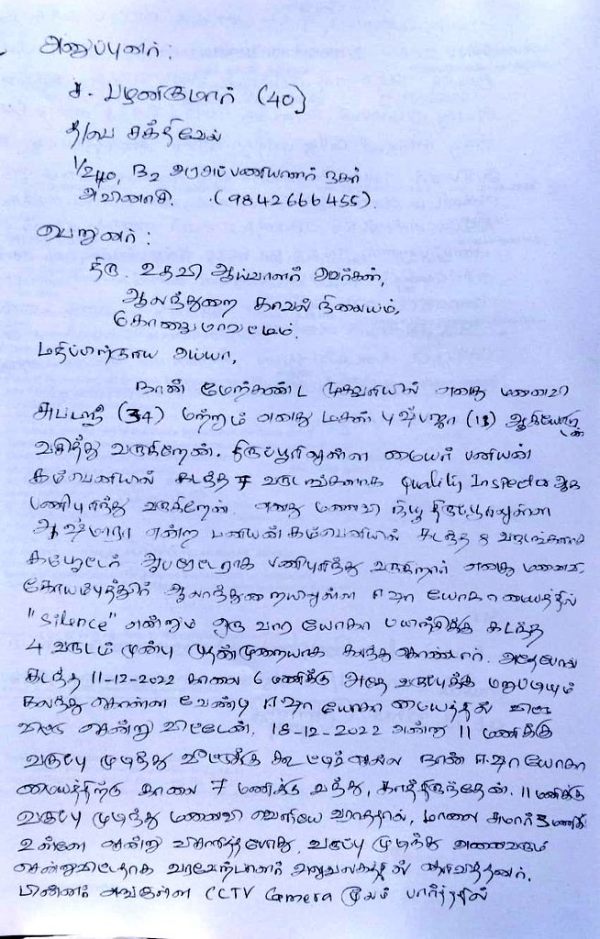 அனுப்புனர் :
ச. பழனிகுமார் (40)
த/பெ சக்திவேல்
1/240, B2 அரசப்பணியாளர் நகர்
அவிநாசி. (9842666455).
பெறுனர் :
திரு. உதவி ஆய்வாளர் அவர்கள்,
ஆலந்துறை காவல் நிலையம்,
கோவை மாவட்டம்.
மதிப்பிற்குரிய அய்யா,
நான் மேற்கண்ட முகவரியில் எனது மனைவி
(34) மற்றும் எனது மகள் (11) ஆகியோருடன்
வசித்து வருகிறேன். திருப்பூரிலுள்ள மையர் பனியன்
கம்பெனியில் கடந்த 7 வருடங்களாக Quality Inspector ஆக
பணிபுரிந்து வருகிறேன். எனது மனைவி திருப்பூரிலுள்ள
என்ற பனியன் கம்பெனியில் கடந்த 8 வருடங்களாக
கம்யூட்டர் ஆபரேட்டராக பணிபுரிந்து வருகிறார் எனது மனைவி
கோயம்புத்தூர் ஆலாந்துறையிலுள்ள ஈஷா யோகா மையத்தில்
"Silence" என்னும் ஒரு வார யோகா பயிற்சிக்கு கடந்த
4 வருடம் முன்பு முதன்முறையாக கலந்து கொண்டார். அதேபோல
கடந்த 11-12-2022 காலை 6 மணிக்கு அதே வகுப்புக்கு மறுபடியும்
கலந்து கொள்ள வேண்டி ஈஷா யோகா மையத்தில்
விட்டு சென்று விட்டேன். 18-12-2022 அன்று 11 மணிக்கு
வகுப்பு முடிந்து வீட்டுக்கு கூட்டிச்செல்ல நான் ஈஷா யோகா
மையத்திற்கு காலை 7 மணிக்கு வந்து, காத்திருந்தேன். 11 மணிக்கு
வகுப்பு முடிந்து மனைவி வெளியே வராததால், மாலை சுமார் 3 மணிக்கு
உள்ளே சென்று விசாரித்தபோது, வகுப்பு முடிந்து அனைவரும்
சென்றுவிட்டதாக வரவேற்பாளர் அலுவலகத்தில் தெரிவித்தனர்.
பின்னர் அங்குள்ள CCTV Camera மூலம் பார்த்ததில்